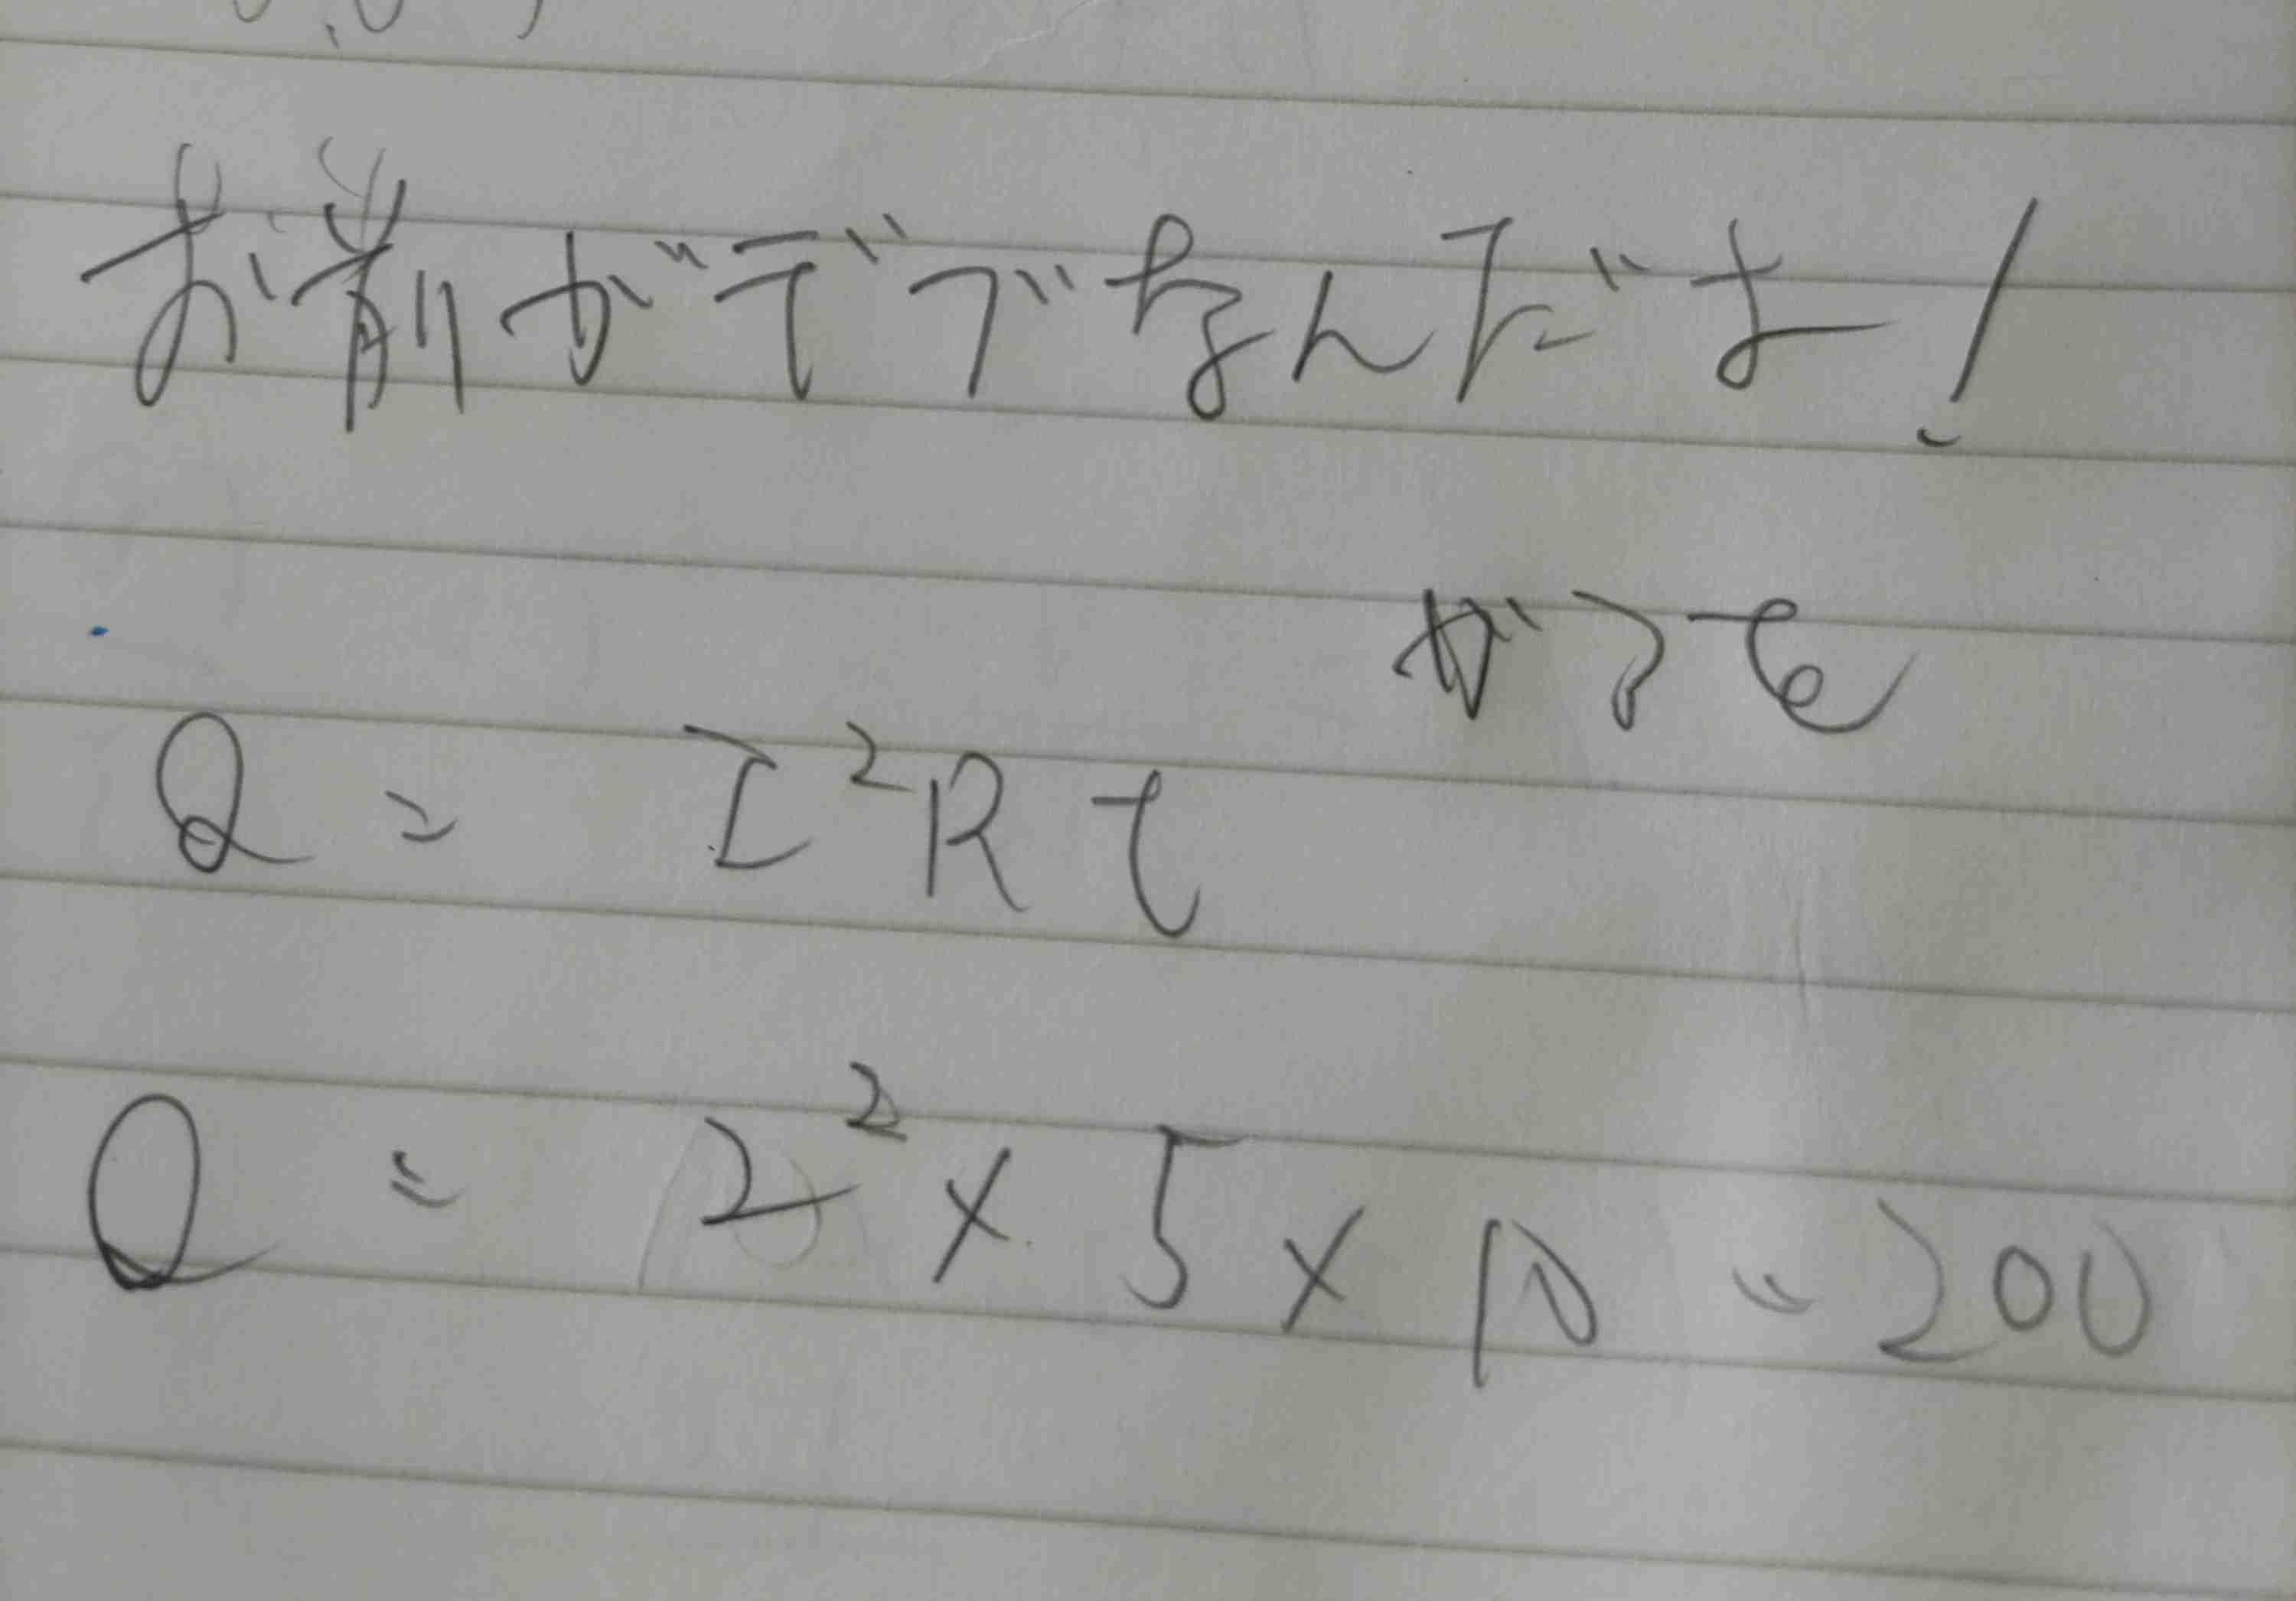 お前がデブなんだよ！
Q = I²Rt
Q = 2² × 5 × 10 = 200